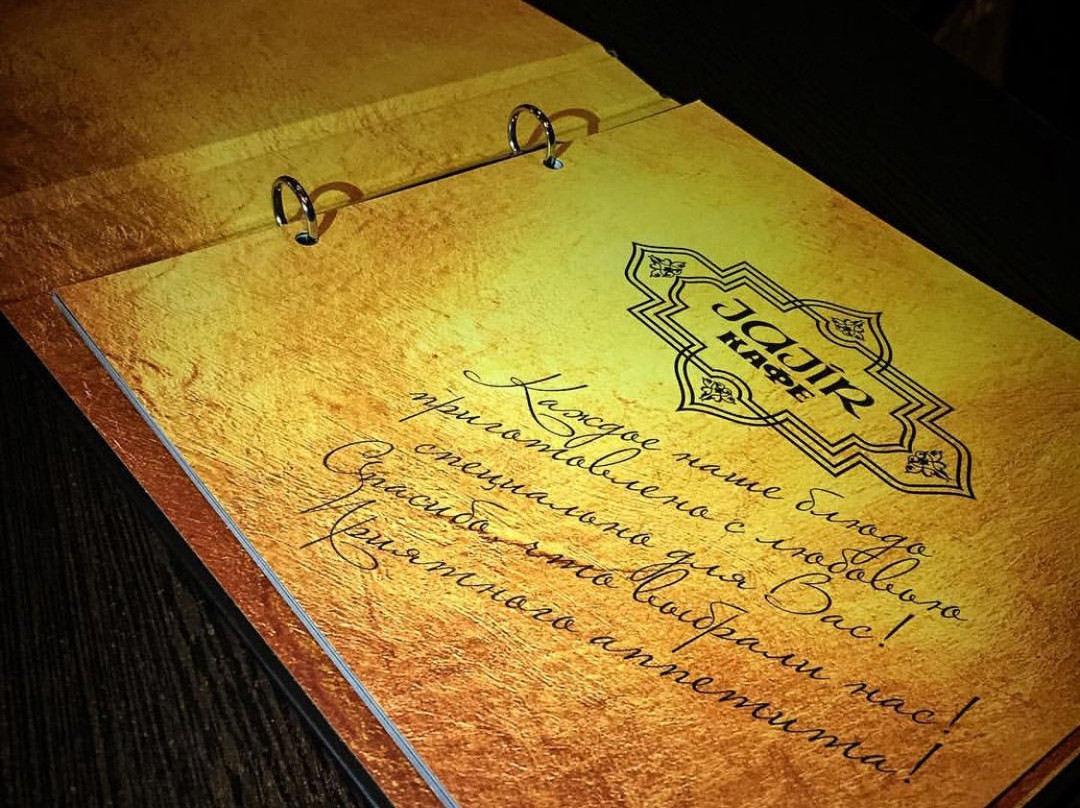 JAJIR
КАФЕ
Каждое наше блюдо
приготовлено с любовью
специально для Вас!
Спасибо, что выбрали нас!
Приятного аппетита!